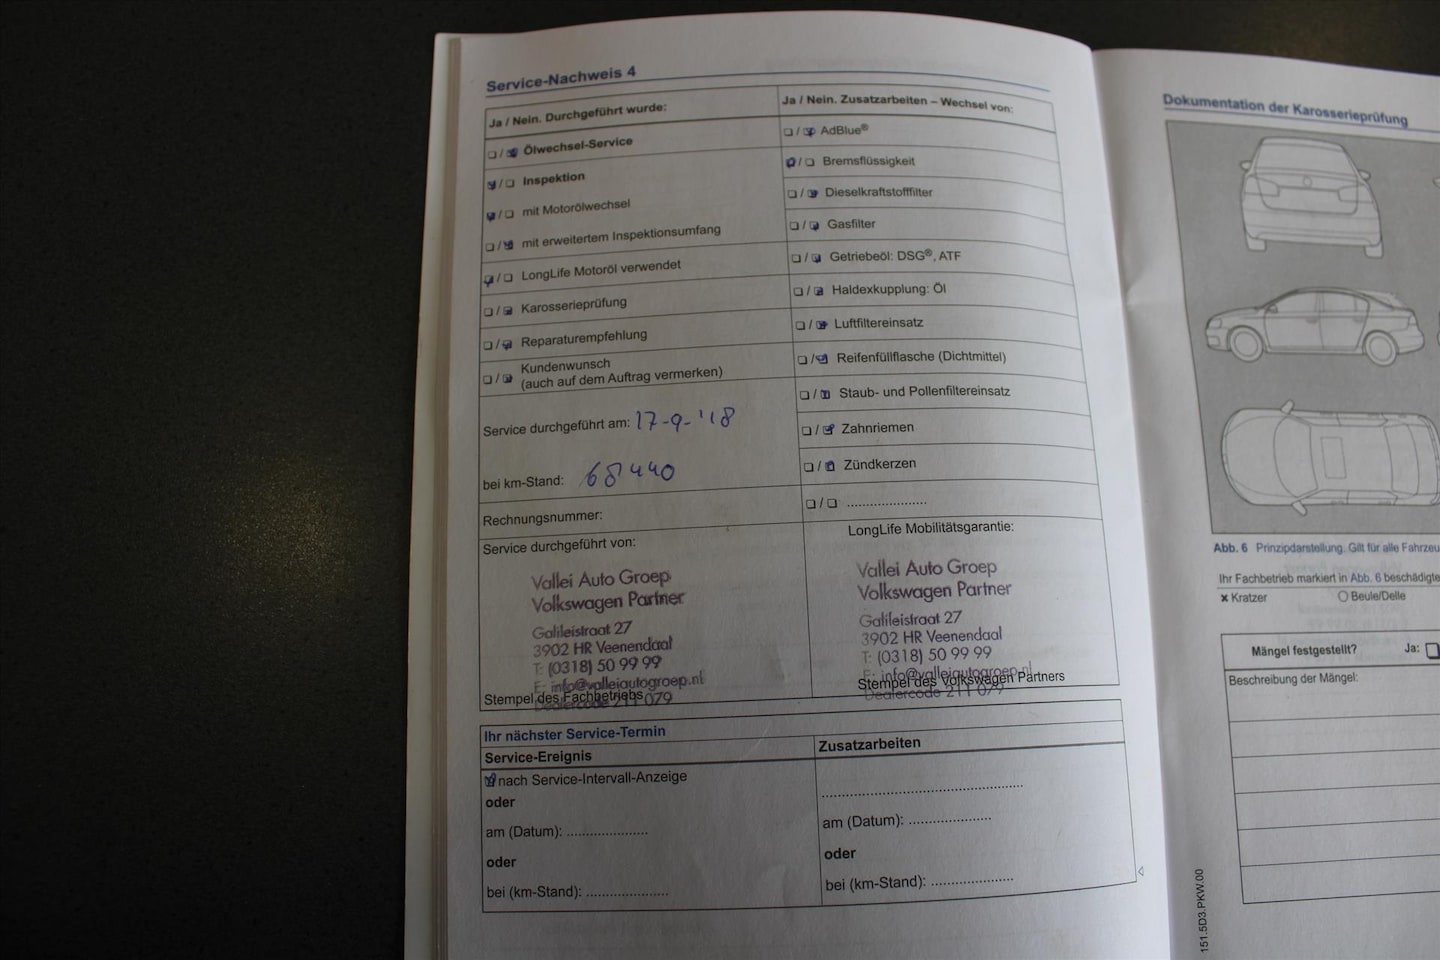 Service-Nachweis 4
Ja / Nein. Durchgeführt wurde:
Ölwechsel-Service
Inspektion
mit Motorölwechsel
mit erweitertem Inspektionsumfang
LongLife Motoröl verwendet
Karosserieprüfung
Reparaturempfehlung
Kundenwunsch
(auch auf dem Auftrag vermerken)
Service durchgeführt am: 17-9-'18
bei km-Stand: 68440
Rechnungsnummer:
Service durchgeführt von:
Vallei Auto Groep
Volkswagen Partner
Galileistraat 27
3902 HR Veenendaal
T: (0318) 50 99 99
E: info@valleiautogroep.nl
Stempel des Fachbetriebs
Dealercode 211 079
Ja / Nein. Zusatzarbeiten – Wechsel von:
AdBlue®
Bremsflüssigkeit
Dieselkraftstofffilter
Gasfilter
Getriebeöl: DSG®, ATF
Haldexkupplung: Öl
Luftfiltereinsatz
Reifenfüllflasche (Dichtmittel)
Staub- und Pollenfiltereinsatz
Zahnriemen
Zündkerzen
......................
LongLife Mobilitätsgarantie:
Vallei Auto Groep
Volkswagen Partner
Galileistraat 27
3902 HR Veenendaal
T: (0318) 50 99 99
E: info@valleiautogroep.nl
Stempel des Volkswagen Partners
Dealercode 211 079
Ihr nächster Service-Termin
Service-Ereignis
nach Service-Intervall-Anzeige
oder
am (Datum): ......................
oder
bei (km-Stand): ......................
Zusatzarbeiten
......................................................
am (Datum): ......................
oder
bei (km-Stand): ......................
Dokumentation der Karosserieprüfung
Abb. 6 Prinzipdarstellung. Gilt für alle
Ihr Fachbetrieb markiert in Abb. 6
x Kratzer
O Beule/Delle
Mängel festgestellt? Ja:
Beschreibung der Mängel:
151.5D3.PKW.00